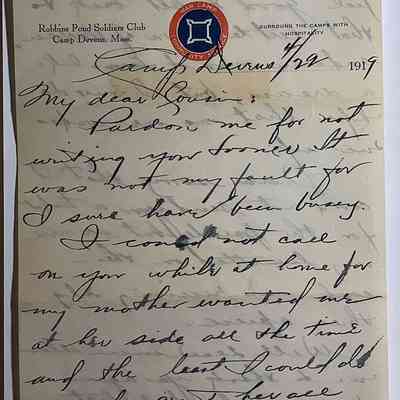 Robbins Pond Soldiers Club
Camp Devens, Mass.
WAR CAMP
COMMUNITY SERVICE
SURROUND THE CAMPS WITH
HOSPITALITY
Camp Devens 4/29 1919
My dear Cousin:
Pardon me for not
writing you sooner It
was not my fault for
I sure have been busey.
I could not call
on you while at home for
my mother wanted me
at her side all the time
and the least I could do
her all